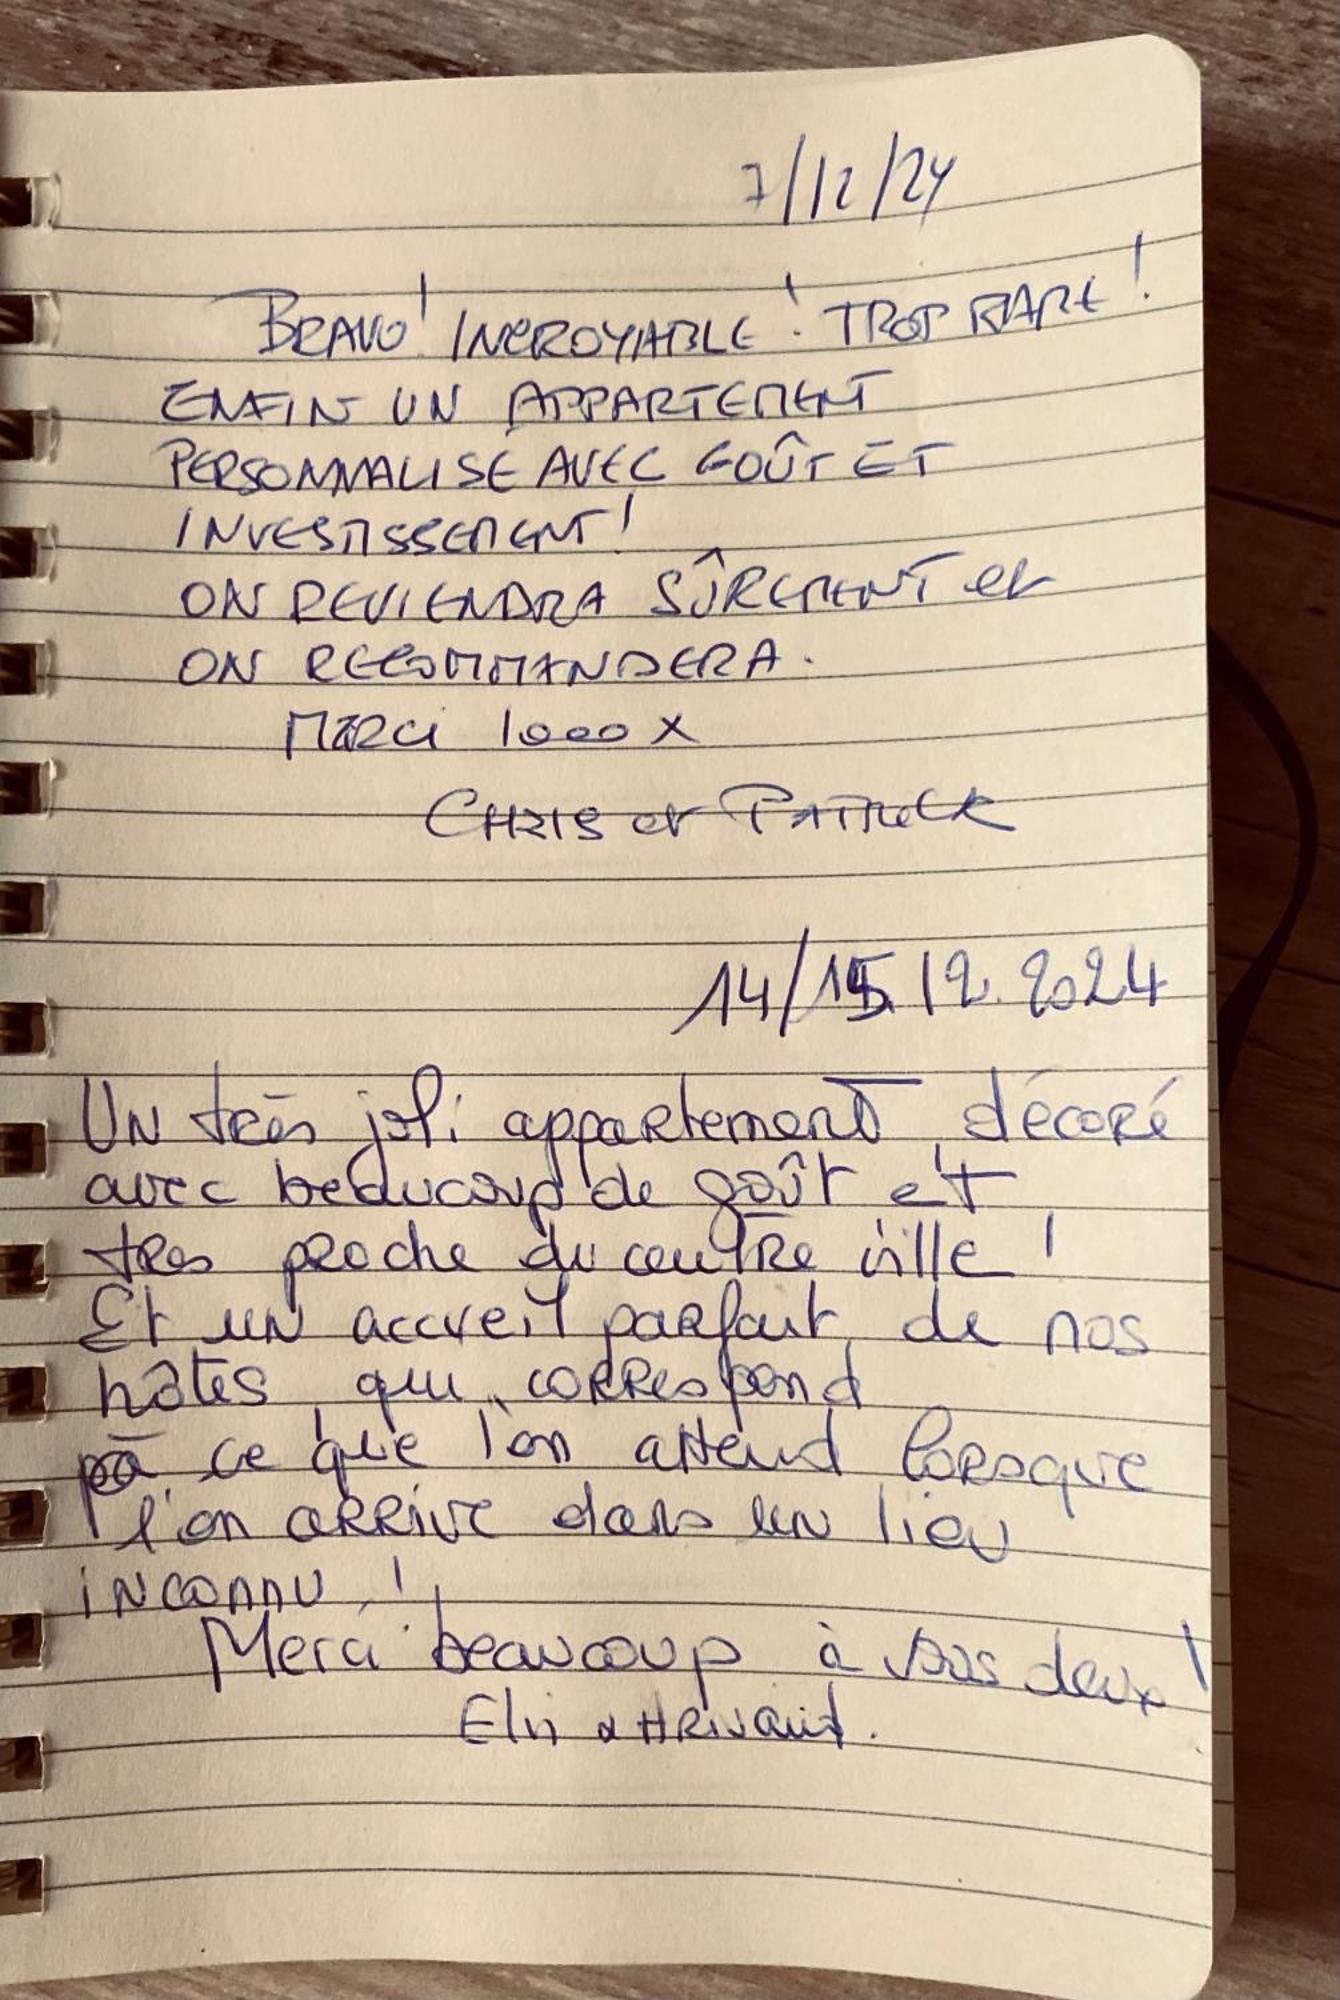 7/12/24
BRAVO! INCROYABLE! TROP RARE!
ENFIN UN APPARTEMENT
PERSONNALISÉ AVEC GOÛT ET
INVESTISSEMENT!
ON REVIENDRA SÛREMENT et
ON RECOMMANDERA.
MERCI 1000 X
CHRIS et PATRICK
14/15.12.2024
UN très joli appartement, décoré
avec beaucoup de goût et
très proche du centre ville !
Et un accueil parfait de nos
hôtes qui correspond
à ce que l'on attend lorsque
l'on arrive dans un lieu
inconnu !
Merci beaucoup à vous deux!
&